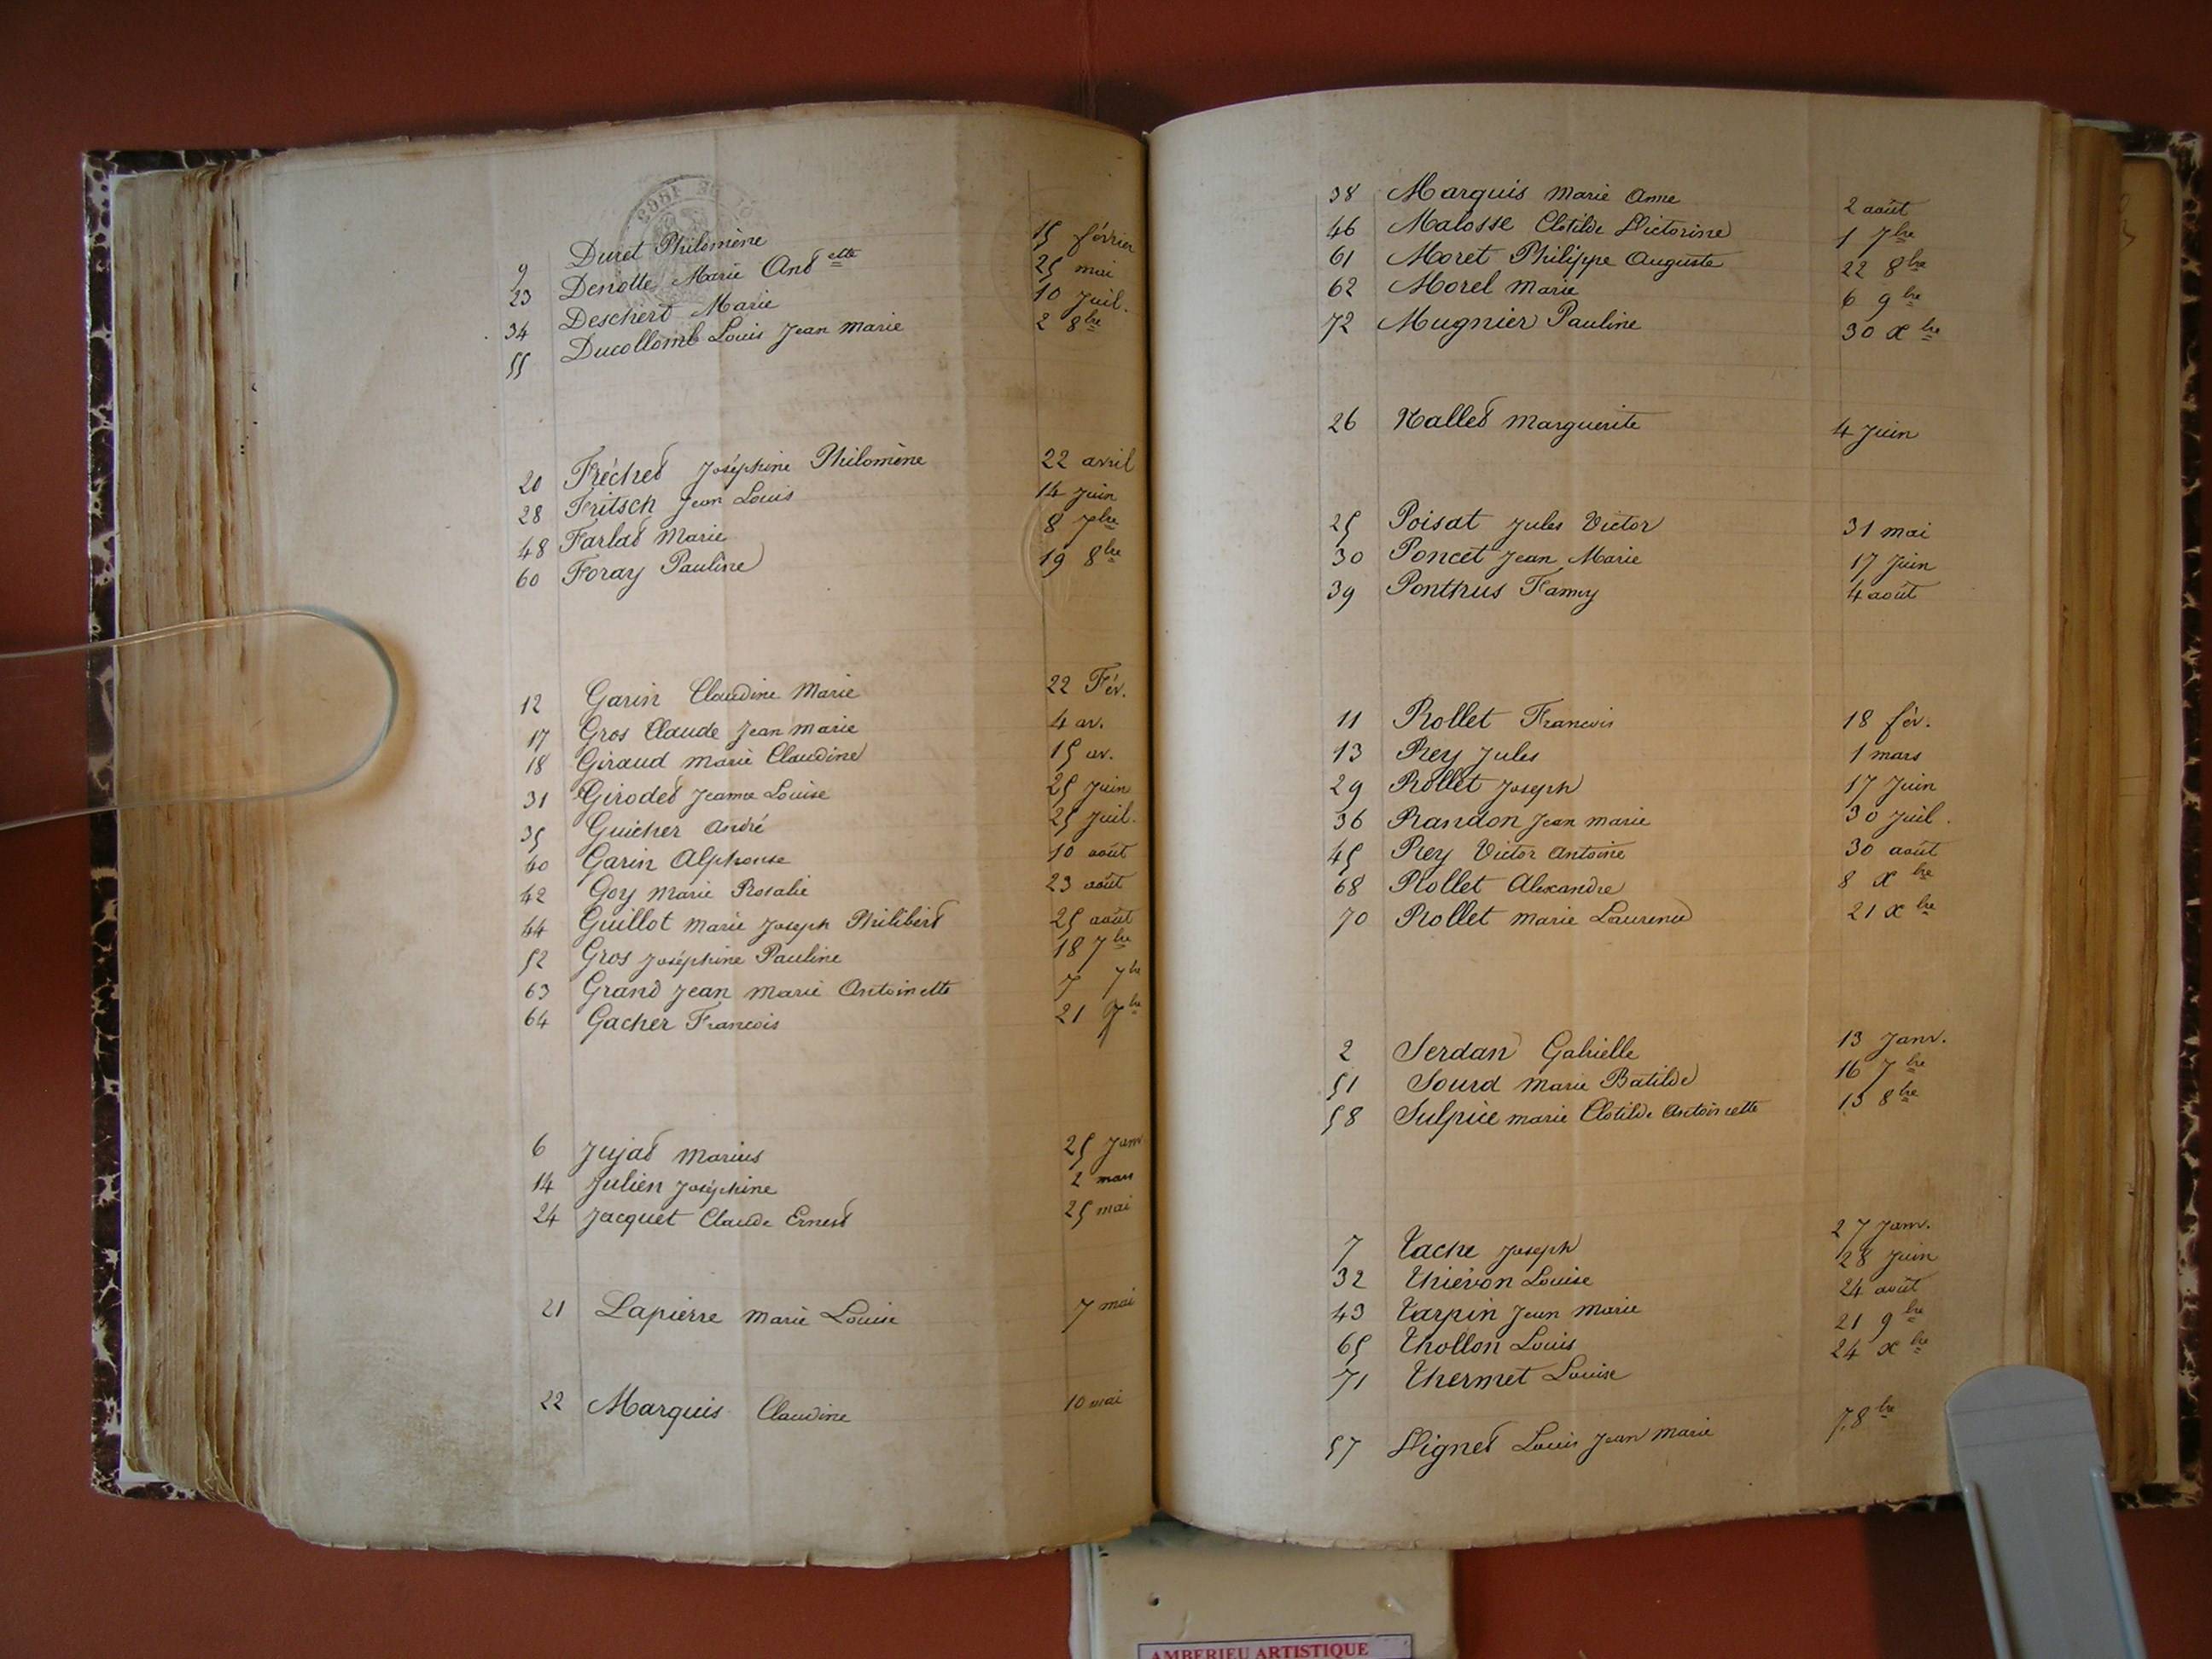 9 Duret Philomène 15 février
23 Denotte Marie And ette 25 mai
34 Deschert Marie 10 Juil.
55 Ducollomb Louis Jean Marie 2 8bre
20 Fréchet Joséphine Philomène 22 avril
28 Fritsch Jean Louis 14 Juin
48 Farlat Marie 8 7bre
60 Foray Pauline 19 8bre
12 Garin Claudine Marie 22 Fév.
17 Gros Claude Jean Marie 4 av.
18 Giraud Marie Claudine 15 av.
31 Girodet Jeanne Louise 25 Juin
35 Guicher André 25 Juil.
40 Garin Alphonse 10 août
42 Goy Marie Rosalie 23 août
44 Guillot Marie Joseph Philibert 25 août
52 Gros Joséphine Pauline 18 7bre
63 Grand Jean Marie Antoinette 7 7bre
64 Gacher Francois 21 bre
6 Jujat Marius 25 Janv
14 Julien Joséphine 2 mars
24 Jacquet Claude Ernest 25 mai
21 Lapierre Marie Louise 7 mai
22 Marquis Claudine 10 mai
38 Marquis Marie Anne 2 août
46 Malosse Clotilde Victorine 1 7bre
61 Moret Philippe Auguste 22 8bre
62 Morel Marie 6 9bre
72 Mugnier Pauline 30 Xbre
26 Nallet Marguerite 4 Juin
25 Poisat Jules Victor 31 mai
30 Poncet Jean Marie 17 Juin
39 Ponthus Fanny 4 août
11 Rollet Francois 18 fév.
13 Rey Jules 1 mars
29 Rollet Joseph 17 Juin
36 Randon Jean Marie 30 Juil.
45 Rey Victor Antoine 30 août
68 Rollet Alexandre 8 Xbre
70 Rollet Marie Laurence 21 Xbre
2 Serdan Gabrielle 13 Janv.
51 Sourd Marie Batilde 16 7bre
58 Sulpice Marie Clotilde Antoinette 15 8bre
7 Tache Joseph 27 Janv.
32 Thiévon Louise 28 Juin
43 Tarpin Jean Marie 24 août
65 Thollon Louis 21 9bre
71 Thermet Louise 24 Xbre
57 Vignet Louis Jean Marie 7 8bre
AMBERIEU ARTISTIQUE